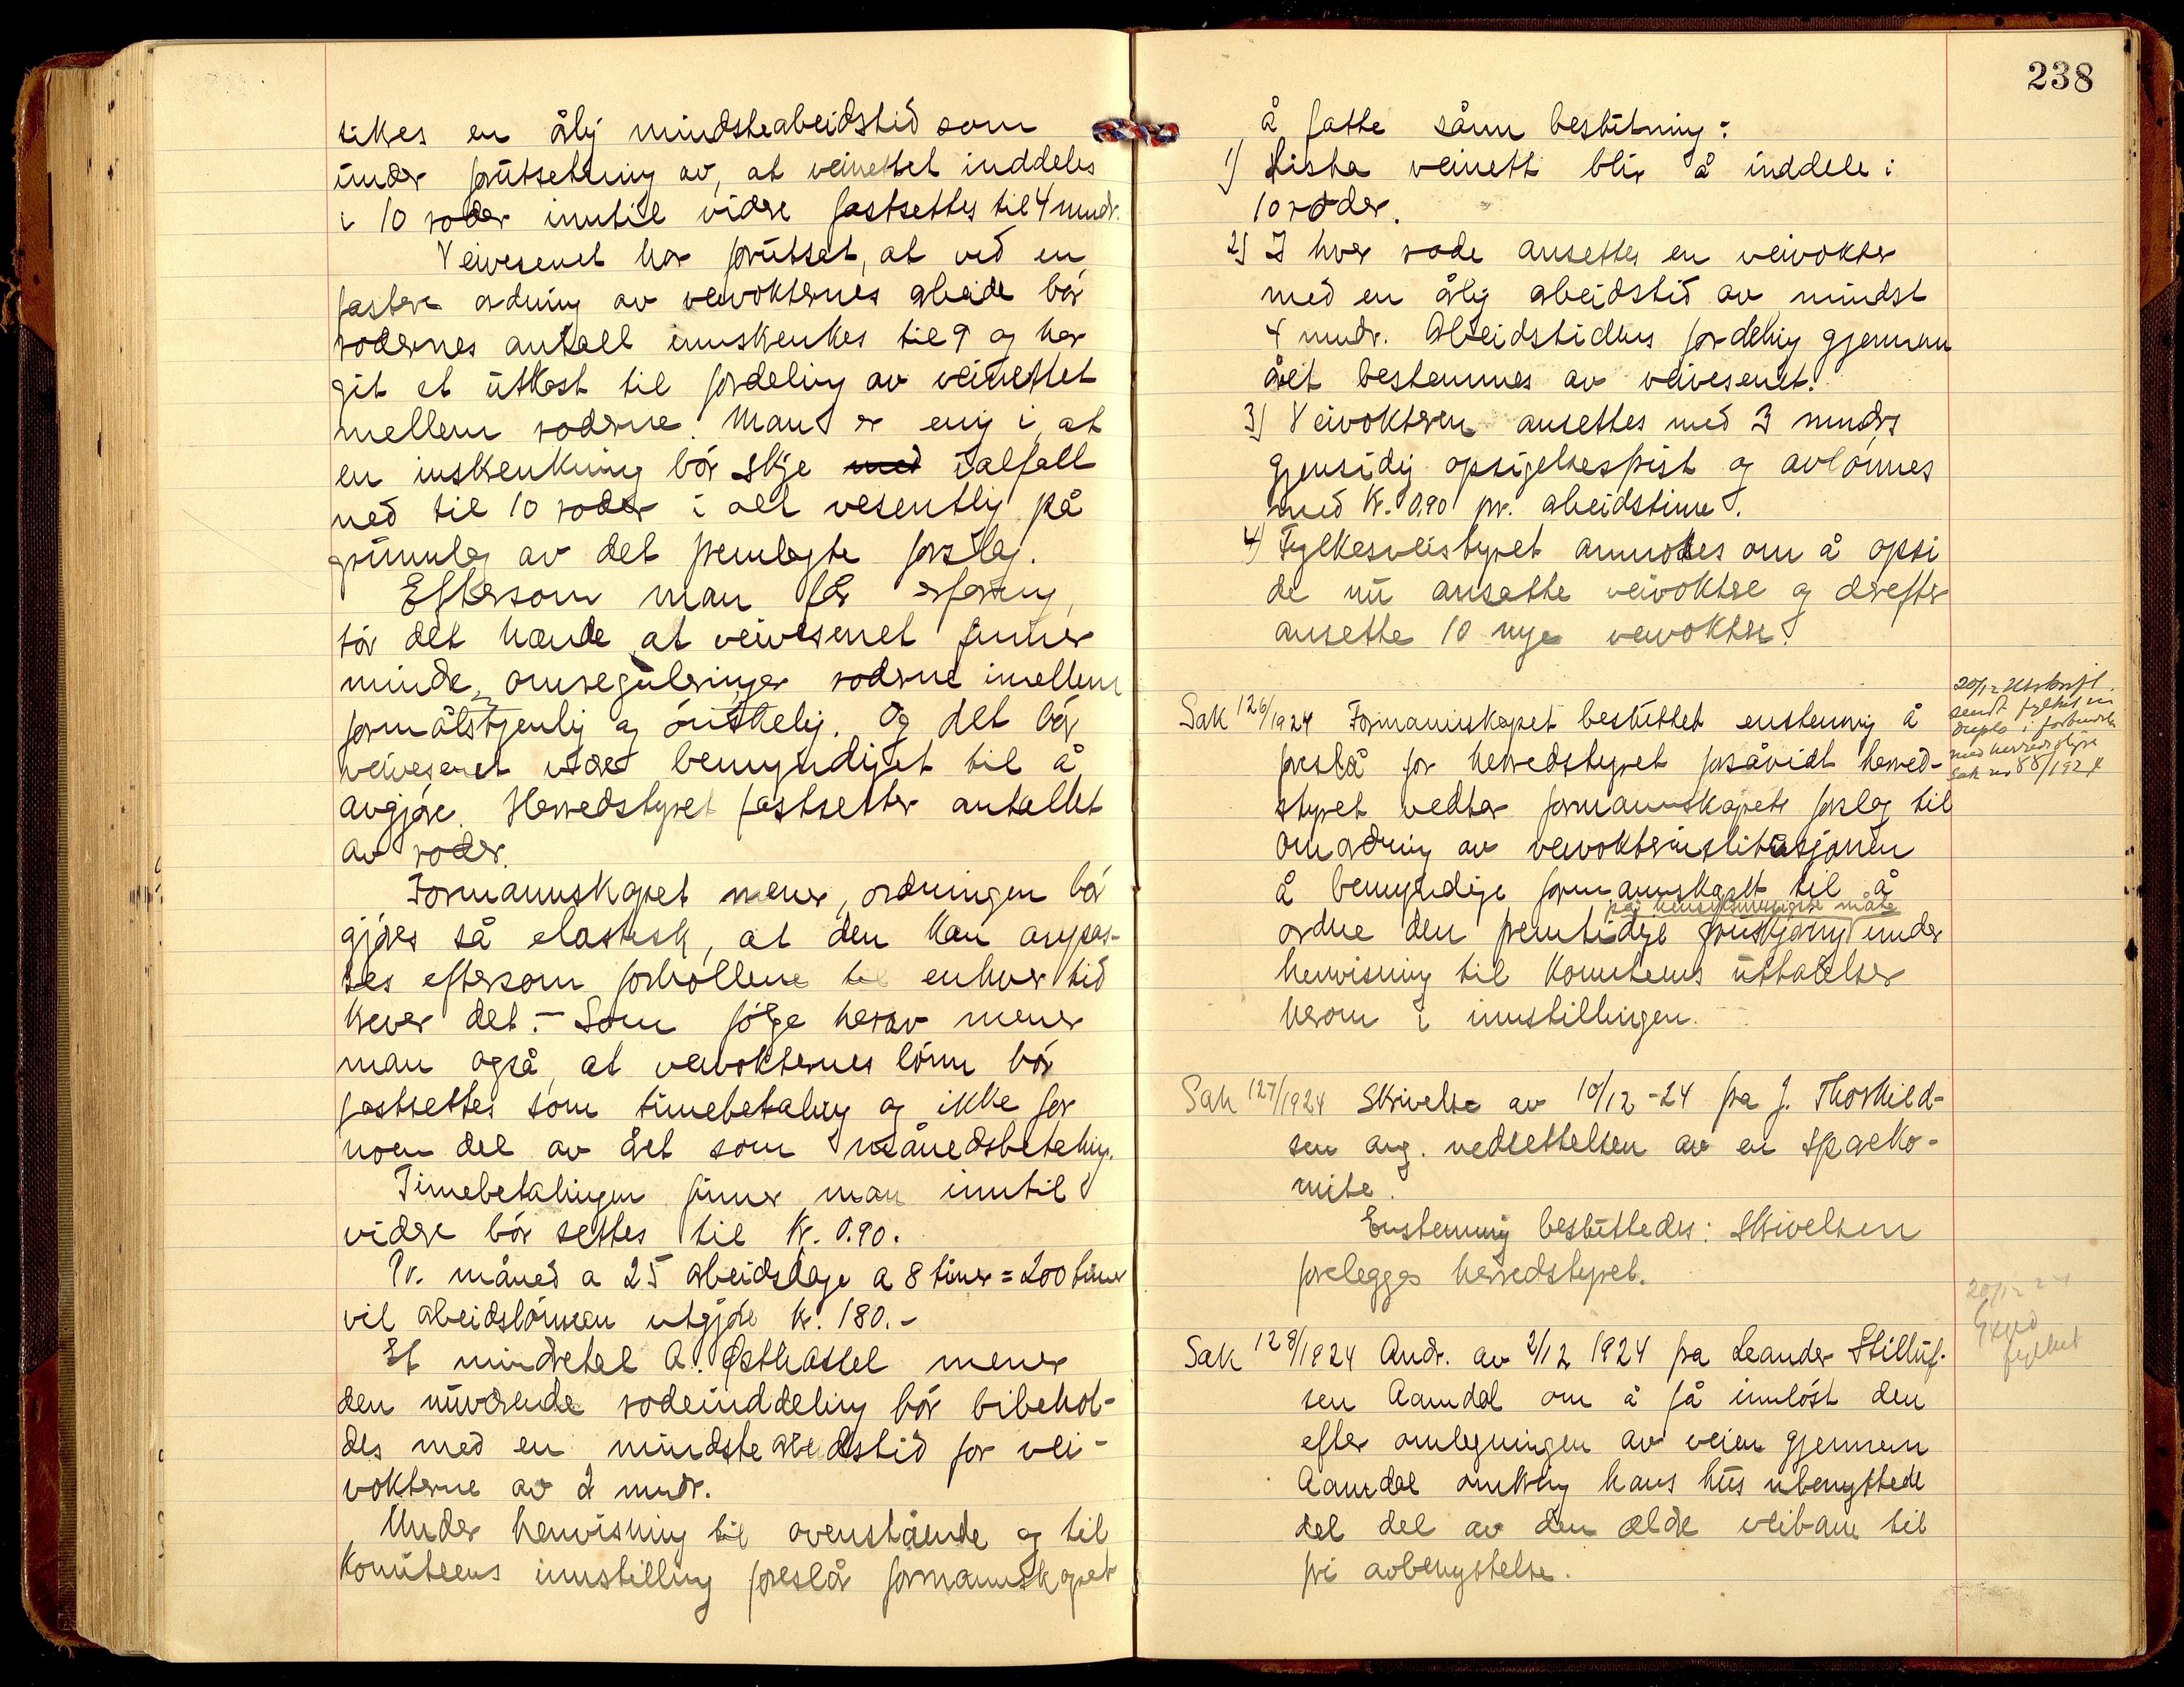 sikres en årlig mindstearbeidstid som
under forutsetning av, at veinettet inddeles
i 10 roder inntil videre fastsettes til 4 mndr.
Veivesenet har forutsat, at ved en
fastere ordning av veivokternes arbeide bør
rodernes antall innskrenkes til 9 og har
git et utkast til fordeling av veinettet
mellem roderne. Man er enig i at
en inskrenkning bør skje med ialfall
ned til 10 roder i alt vesentlig på
grunnlag av det fremlagte forslag.
Eftersom man får erfaring,
tør det hænde at veivesenet finner
mindre omreguleringer roderne imellem
formålstjenlig og ønskelig. Og det bør
veivesenet være bemyndiget til å
avgjøre. Herredstyret fastsetter antallet
av roder.
Formannskapet mener, ordningen bør
gjøres så elastisk, at den kan anpas-
ses eftersom forhollene til enhver tid
krever det. – Som følge herav mener
man også, at veivokternes lønn bør
fastsettes som timebetaling og ikke for
noen del av året som månedsbetaling.
Timebetalingen finner man inntil
videre bør settes til kr. 0.90.
Pr. måned a 25 arbeidsdage a 8 timer = 200 timer
vil arbeidslønnen utgjøre kr. 180.-
Et mindretal A. Østhassel mener
den nuværende rodeinddeling bør bibehol-
des med en mindste arbeidstid for vei-
vokterne av 2 mndr.
Under henvisning til ovenstående og til
komiteens innstilling foreslår formannskapet
238
å fatte sånn beslutning:
1) Lista veinett blir å inddele i
10 roder.
2) I hver rode ansettes en veivokter
med en årlig arbeidstid av mindst
4 mndr. Arbeidstidens fordeling gjennem
året bestemmes av veivesenet.
3) Veivokteren ansettes med 3 mndrs
gjensidig opsigelsesfrist og avlønnes
med kr. 0.90 pr. arbeidstime.
4) Fylkesveistyret anmodes om å opsi
de nu ansatte veivoktere og derefter
ansette 10 nye veivoktere.
20/12 Utskrift
sendt fylket in
duplo i forbindelse
med herredsstyre
sak nr 88/1924
Sak 126/1924 Formannskapet besluttet enstemmig å
foreslå for herredstyret forsåvidt herred-
styret vedtar formannskapets forslag til
omordning av veivokterinstitusjonen
å bemyndige formannskapet til å
på hensiktsmessigste måte
ordne den fremtidige gruskjøring under
henvisning til komiteens uttalelser
herom i innstillingen.
Sak 127/1924 Skrivelse av 10/12 -24 fra J. Thorkild-
sen ang. nedsettelsen av en spareko-
mite.
Enstemmig besluttedes: Skrivelsen
forelegges herredstyret.
20/12 24
Exped
fylket
Sak 128/1924 Andr. av 2/12 1924 fra Leander Stilluf-
sen Aamdal om å få innløst den
efter omlegningen av veien gjennem
Aamdal omkring hans hus ubenyttede
del del av den ældre veibane til
fri avbenyttelse.